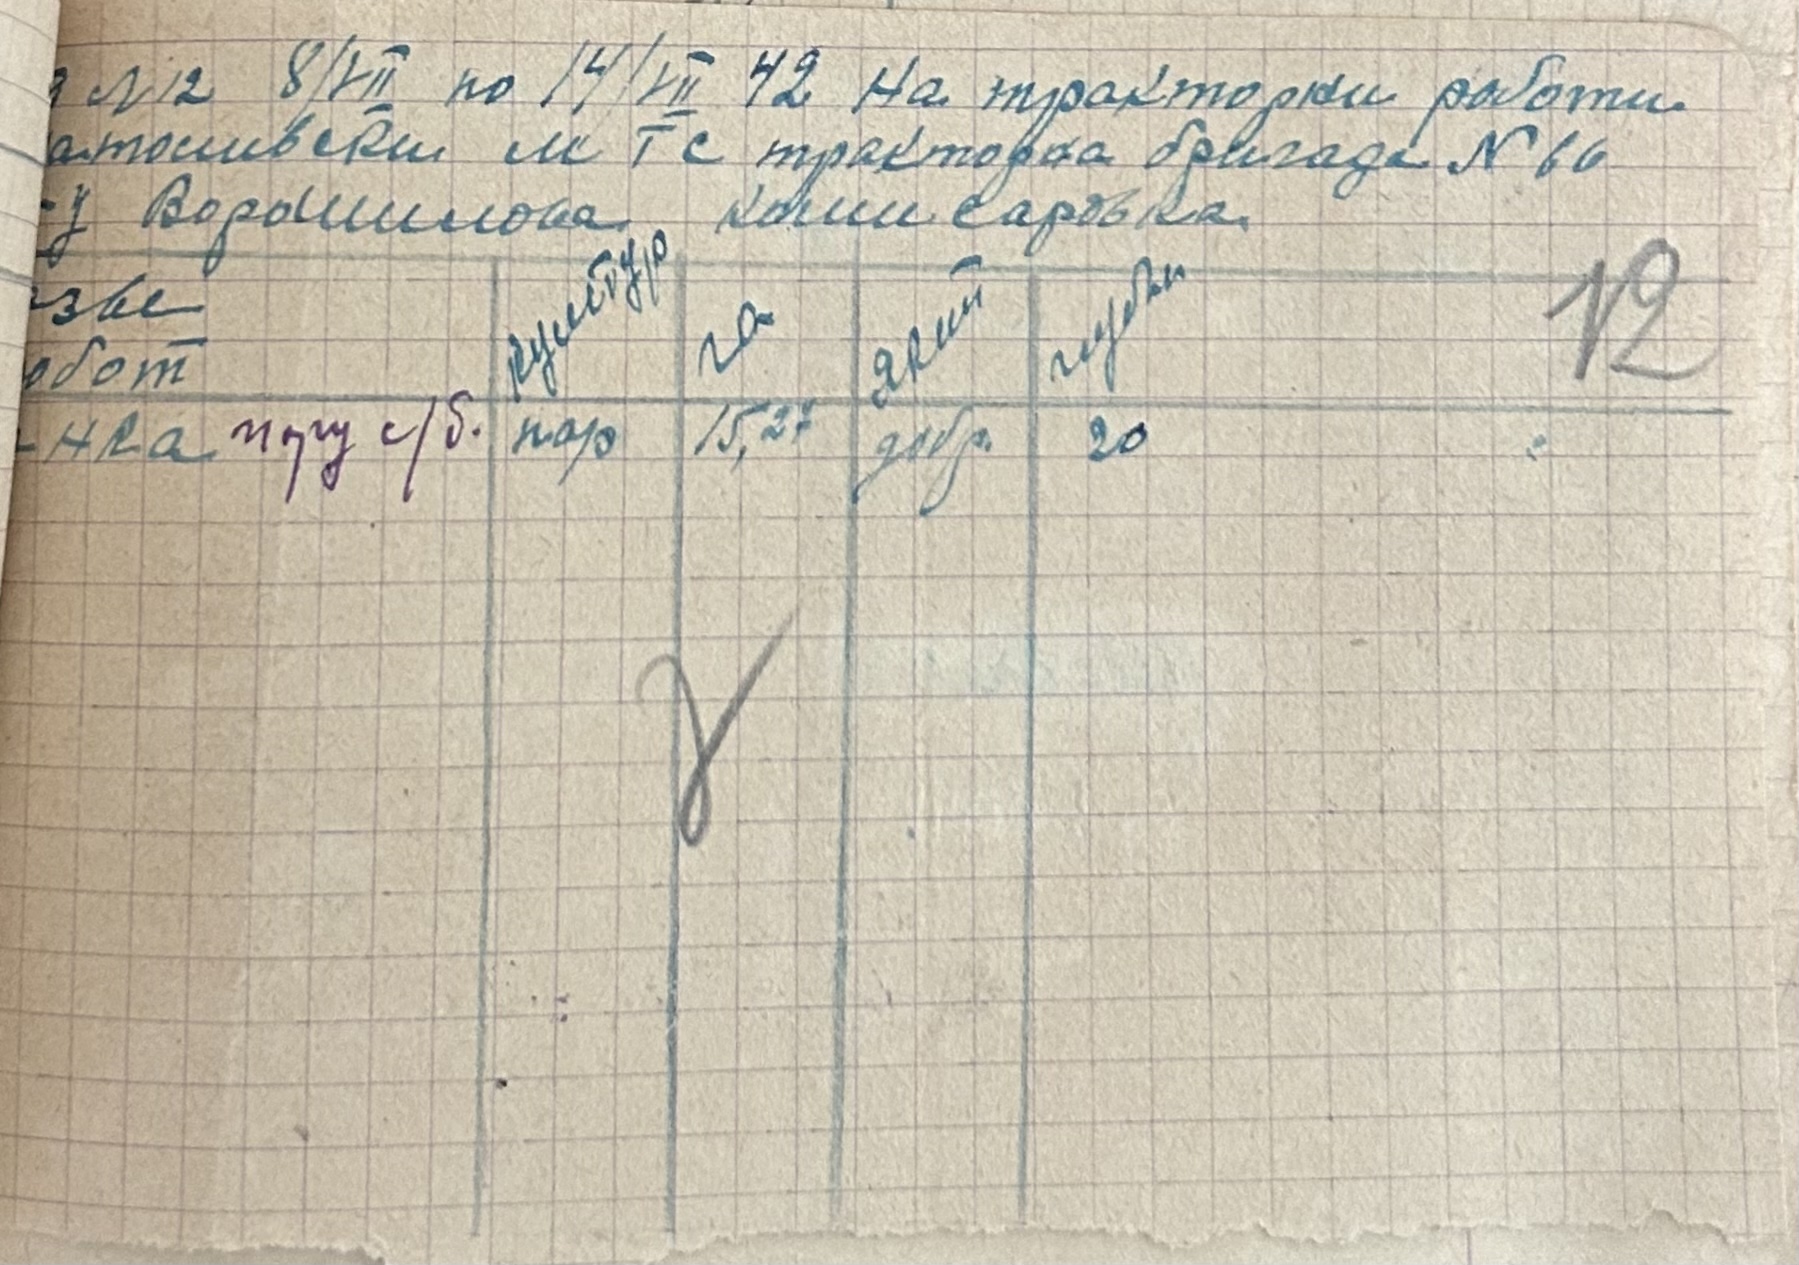 N12 8/VII по 14/VII 42 на тракторни роботи
м Т С тракторна бригада N 66
-у Ворошилова комисаровка
12
зве
обот
культур
га
якіт
глуби
-нка пару с/б.
пар
15,27
добр.
20